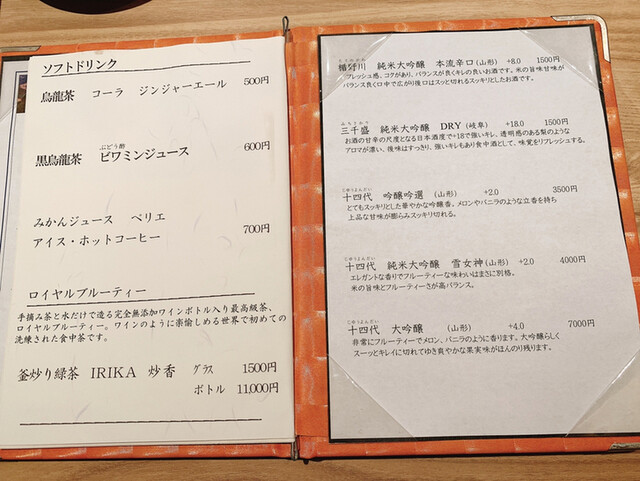 ソフトドリンク
烏龍茶 コーラ ジンジャーエール 500円
ぶどう酢
黒烏龍茶 ビワミンジュース 600円
みかんジュース ペリエ
アイス・ホットコーヒー 700円
ロイヤルブルーティー
手摘み茶と水だけで造る完全無添加ワインボトル入り最高級茶、
ロイヤルブルーティー。ワインのように楽愉しめる世界で初めての
洗練された食中茶です。
釜炒り緑茶 IRIKA 炒香 グラス 1500円
ボトル 11,000円
楯野川 純米大吟醸 本流辛口(山形) +8.0 1500円
フレッシュ感、コクがあり、バランスが良くキレの良いお酒です。米の旨味甘味が
バランス良く口中で広がり後口はスッと切れるスッキリとしたお酒です。
みちさかり
三千盛 純米大吟醸 DRY(岐阜) +18.0 1500円
お酒の甘辛の尺度となる日本酒度で+18で強いキレ、透明感のある梨のような
アロマが濃い、後味はすっきり、強いキレもあり食中酒として、味覚をリフレッシュする。
じゅうよんだい
十四代 吟醸吟選 (山形) +2.0 3500円
とてもスッキリとした華やかな吟醸香。メロンやバニラのような立香を持ち
上品な甘味が膨らみスッキリ切れる。
じゅうよんだい
十四代 純米大吟醸 雪女神(山形) +2.0 4000円
エレガントな香りでフルーティーな味わいはまさに別格。
米の旨味とフルーティーさが高バランス。
じゅうよんだい
十四代 大吟醸 (山形) +4.0 7000円
非常にフルーティーでメロン、バニラのように香ります。大吟醸らしく
スーッとキレイに切れてゆき爽やかな果実味がほんのり残ります。